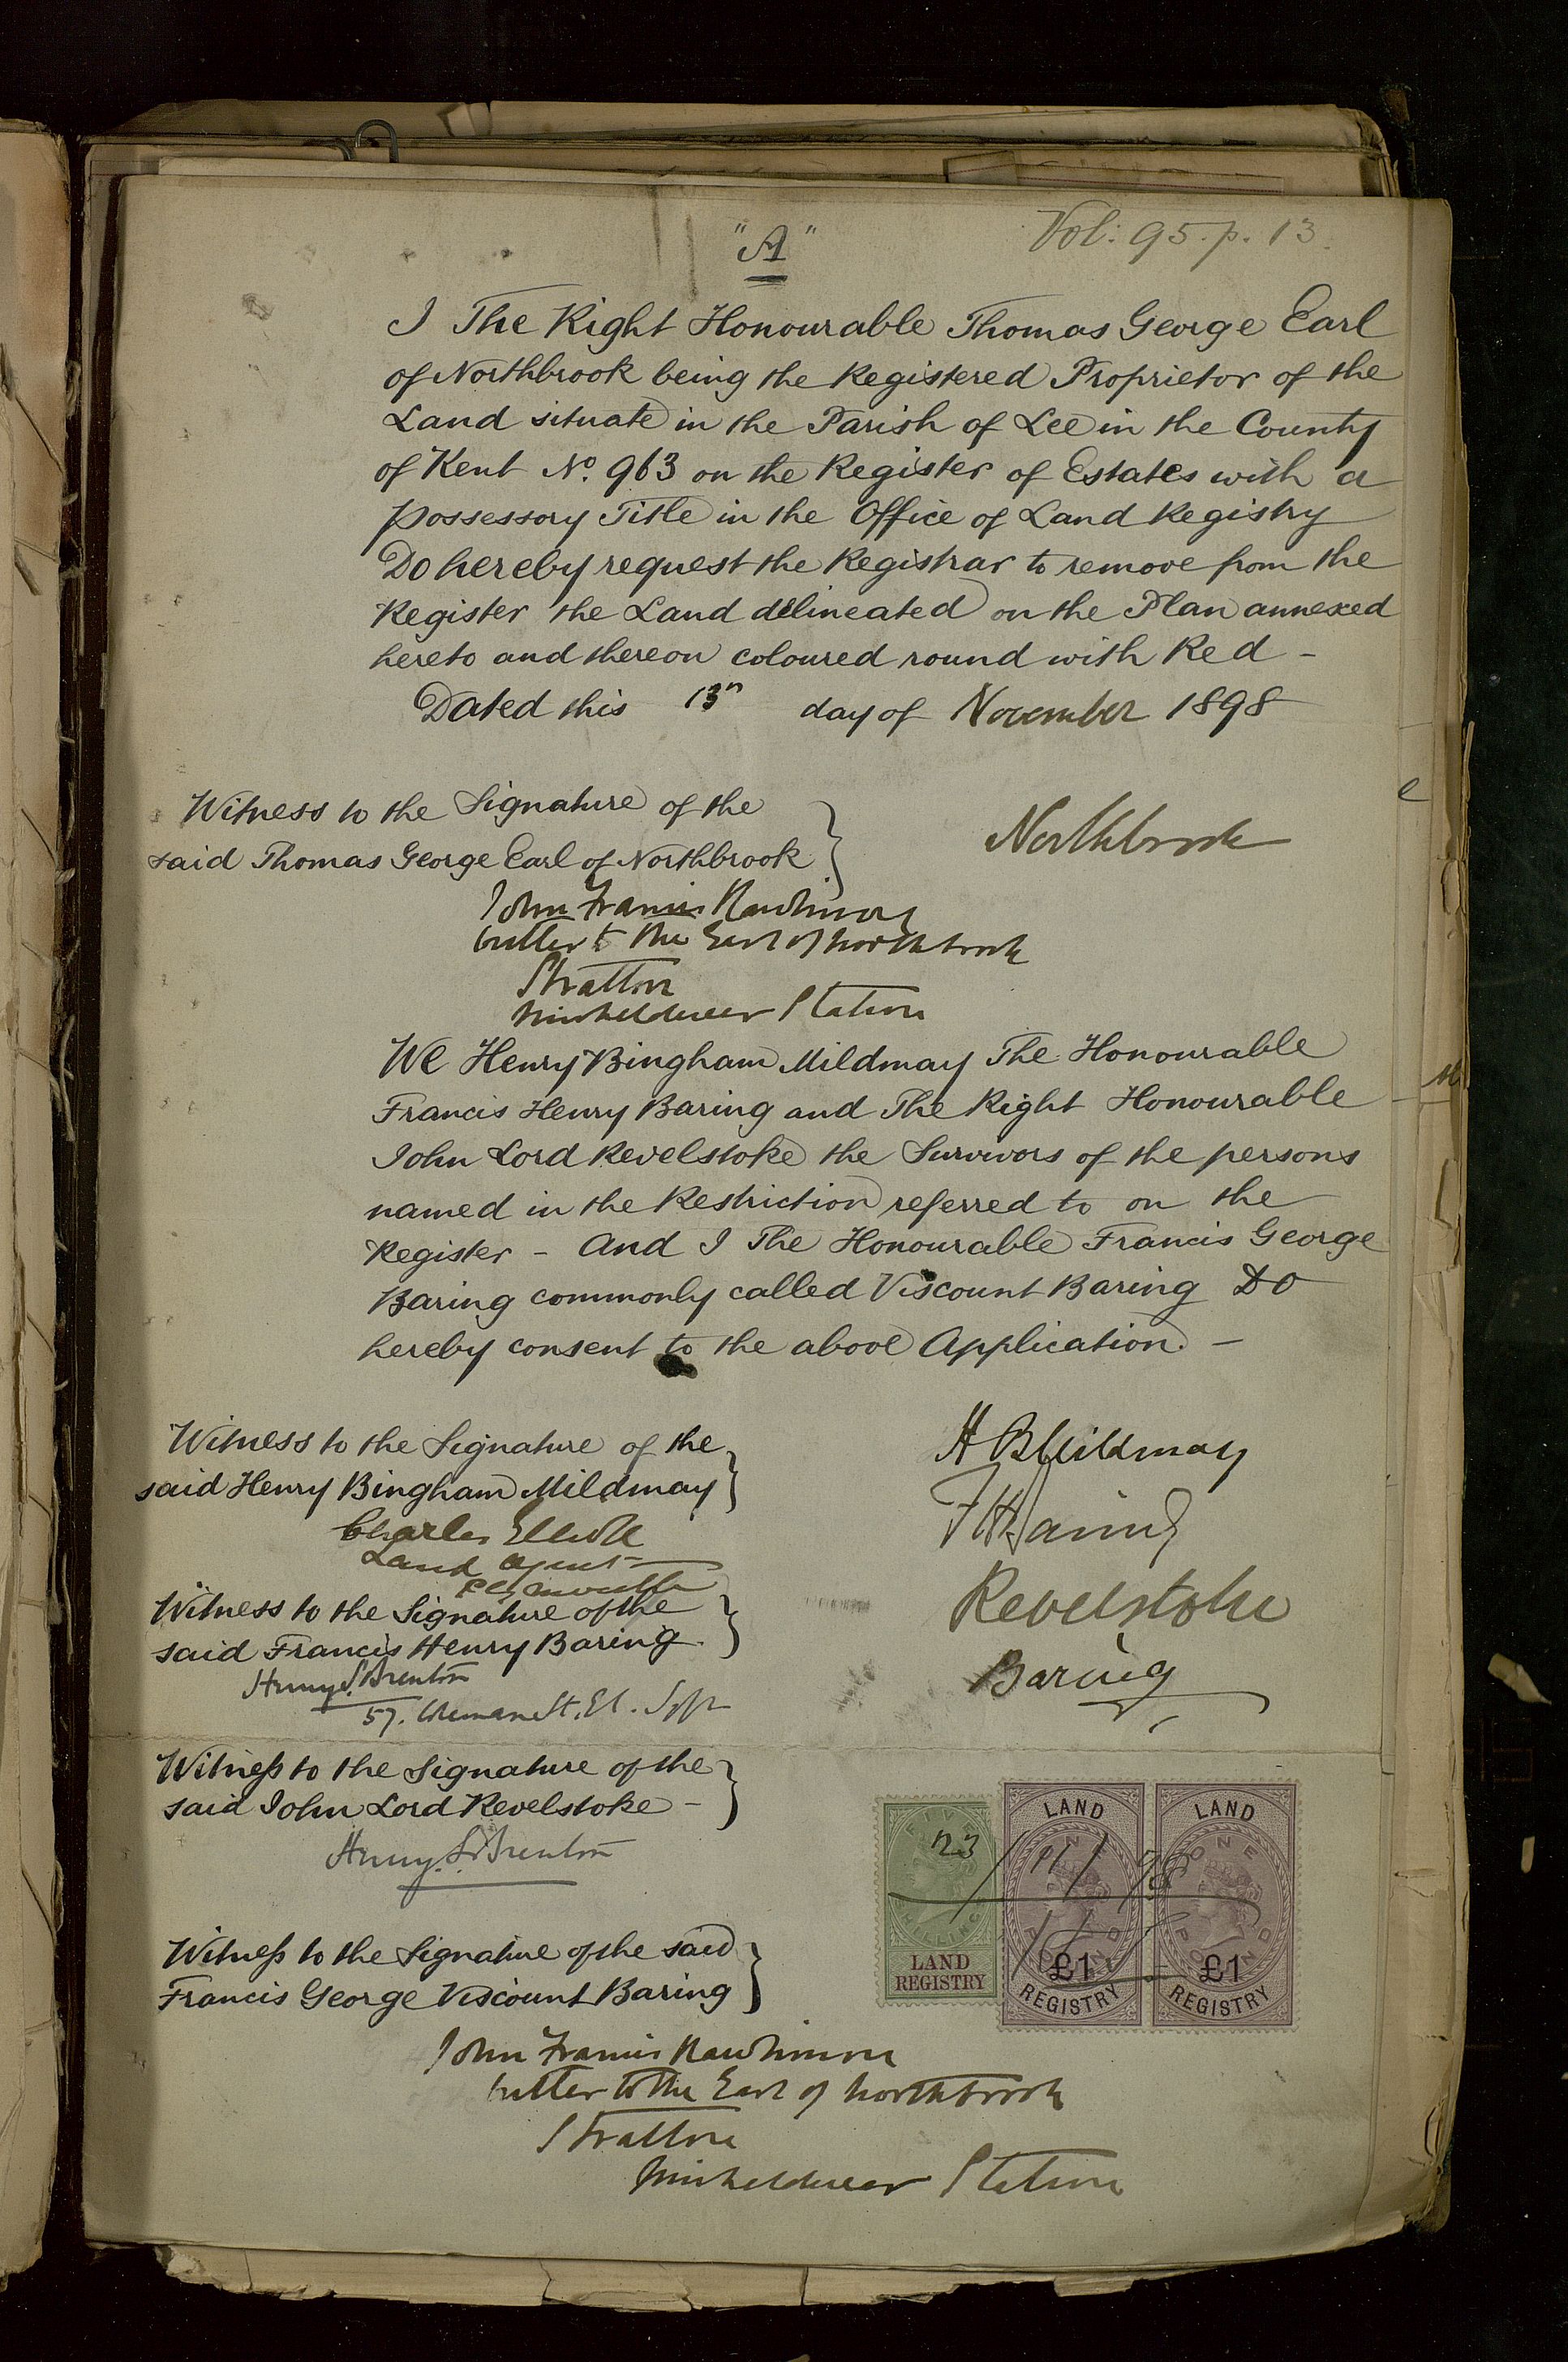 "A"
Vol: 95. p. 13.
I The Right Honourable Thomas George Earl
of Northbrook being the Registered Proprietor of the
Land situate in the Parish of Lee in the County
of Kent No. 963 on the Register of Estates with a
possessory Title in the Office of Land Registry
Do hereby request the Registrar to remove from the
Register the Land delineated on the Plan annexed
hereto and thereon coloured round with Red -
Dated this 13th day of November 1898
Witness to the Signature of the
said Thomas George Earl of Northbrook
Northbrook
John Francis Rawlinson
butler to the Earl of Northbrook
Stratton
Micheldever Station
We Henry Bingham Mildmay The Honourable
Francis Henry Baring and The Right Honourable
John Lord Revelstoke the Survivors of the persons
named in the Restriction referred to on the
Register - And I The Honourable Francis George
Baring commonly called Viscount Baring Do
hereby consent to the above Application. -
Witness to the Signature of the
said Henry Bingham Mildmay
H B Mildmay
Charles Elliott
Land Agent
Plymouth
F H Baring
Witness to the Signature of the
said Francis Henry Baring
Revelstoke
Henry S. Brenton
57. Coleman St. E.C.
Baring
Witness to the Signature of the
said John Lord Revelstoke -
Henry S. Brenton
23/11/98
LAND REGISTRY
LAND ONE POUND £1 REGISTRY
LAND ONE POUND £1 REGISTRY
Witness to the Signature of the said
Francis George Viscount Baring
John Francis Rawlinson
butler to the Earl of Northbrook
Stratton
Micheldever Station